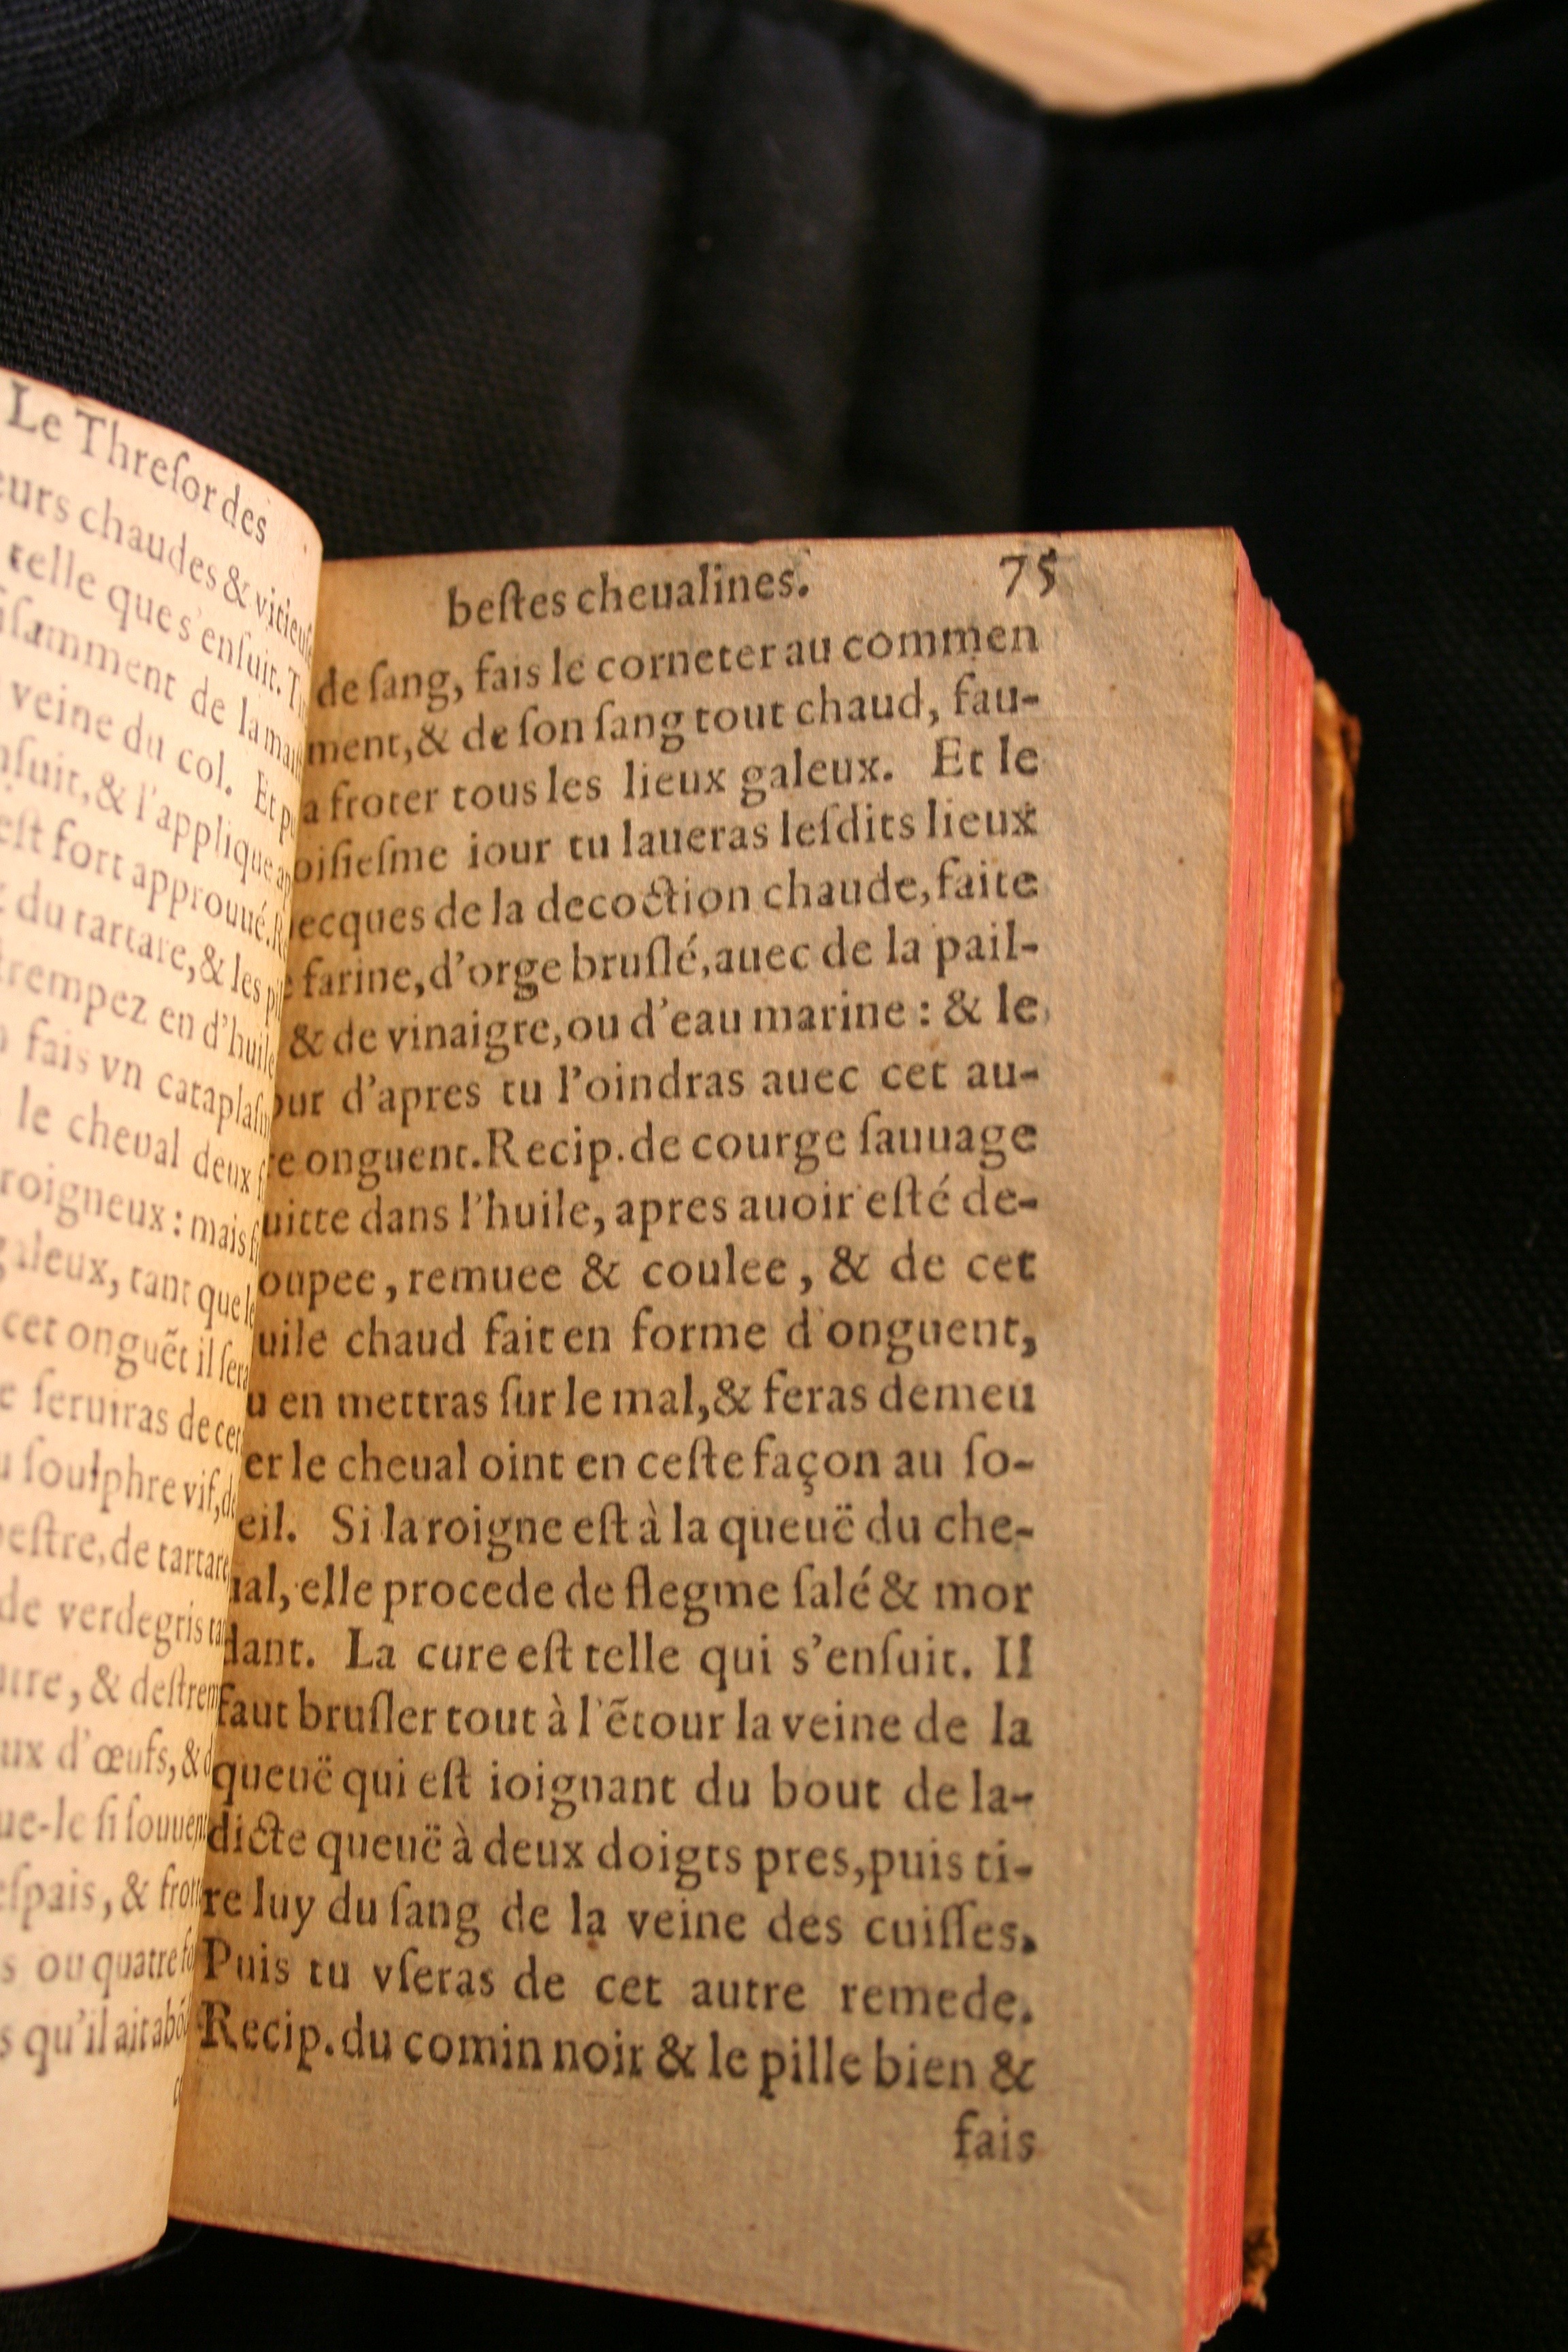 Le Threſor des
eurs chaudes & vitieuſe
telle que s'enſuit. T
iſamment de la mau
veine du col. Et pu
nſuit, & l'applique ap
eſt fort approuué. Re
du tartare, & les pil
trempez en d'huile
fais vn cataplaſm
le cheual deux f
roigneux : mais ſi
galeux, tant que le
cet onguẽt il ſera
e ſeruiras de cet
u soulphre vif, de
eſtre, de tartare
de verdegris ta
utre, & deſtrem
ux d'œufs, & d
ue-le ſi ſouuent
eſpais, & frott
s ou quatre fo
s qu'il ait abõ
beſtes cheualines. 75
de ſang, fais le corneter au commen
ment, & de ſon ſang tout chaud, fau-
a froter tous les lieux galeux. Et le
oiſieſme iour tu laueras leſdits lieux
ecques de la decoction chaude, faite
e farine, d'orge bruſlé, auec de la pail-
& de vinaigre, ou d'eau marine : & le
our d'apres tu l'oindras auec cet au-
re onguent. Recip. de courge ſauuage
uitte dans l'huile, apres auoir eſté de-
oupee, remuee & coulee, & de cet
uile chaud fait en forme d'onguent,
u en mettras ſur le mal, & feras demeu
er le cheual oint en ceſte façon au ſo-
eil. Si la roigne eſt à la queuë du che-
ual, elle procede de flegme ſalé & mor
dant. La cure eſt telle qui s'enſuit. Il
faut bruſler tout à l'ẽtour la veine de la
queuë qui eſt ioignant du bout de la-
dicte queuë à deux doigts pres, puis ti-
re luy du ſang de la veine des cuiſſes.
Puis tu vſeras de cet autre remede.
Recip. du comin noir & le pille bien &
fais